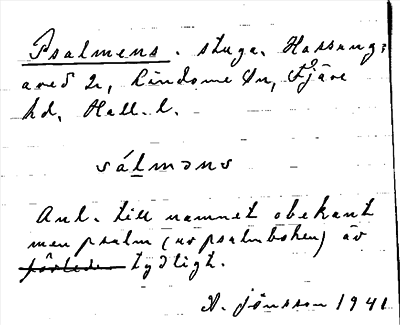 Psalmens. stuga. Hassung:
ared 2, Lindome sn, Fjäre
hd, Hall. l.
sálməns
Anl. till namnet obekant
men psalm (ur psalmboken) är
förleden tydligt.
A. Jönsson 1941